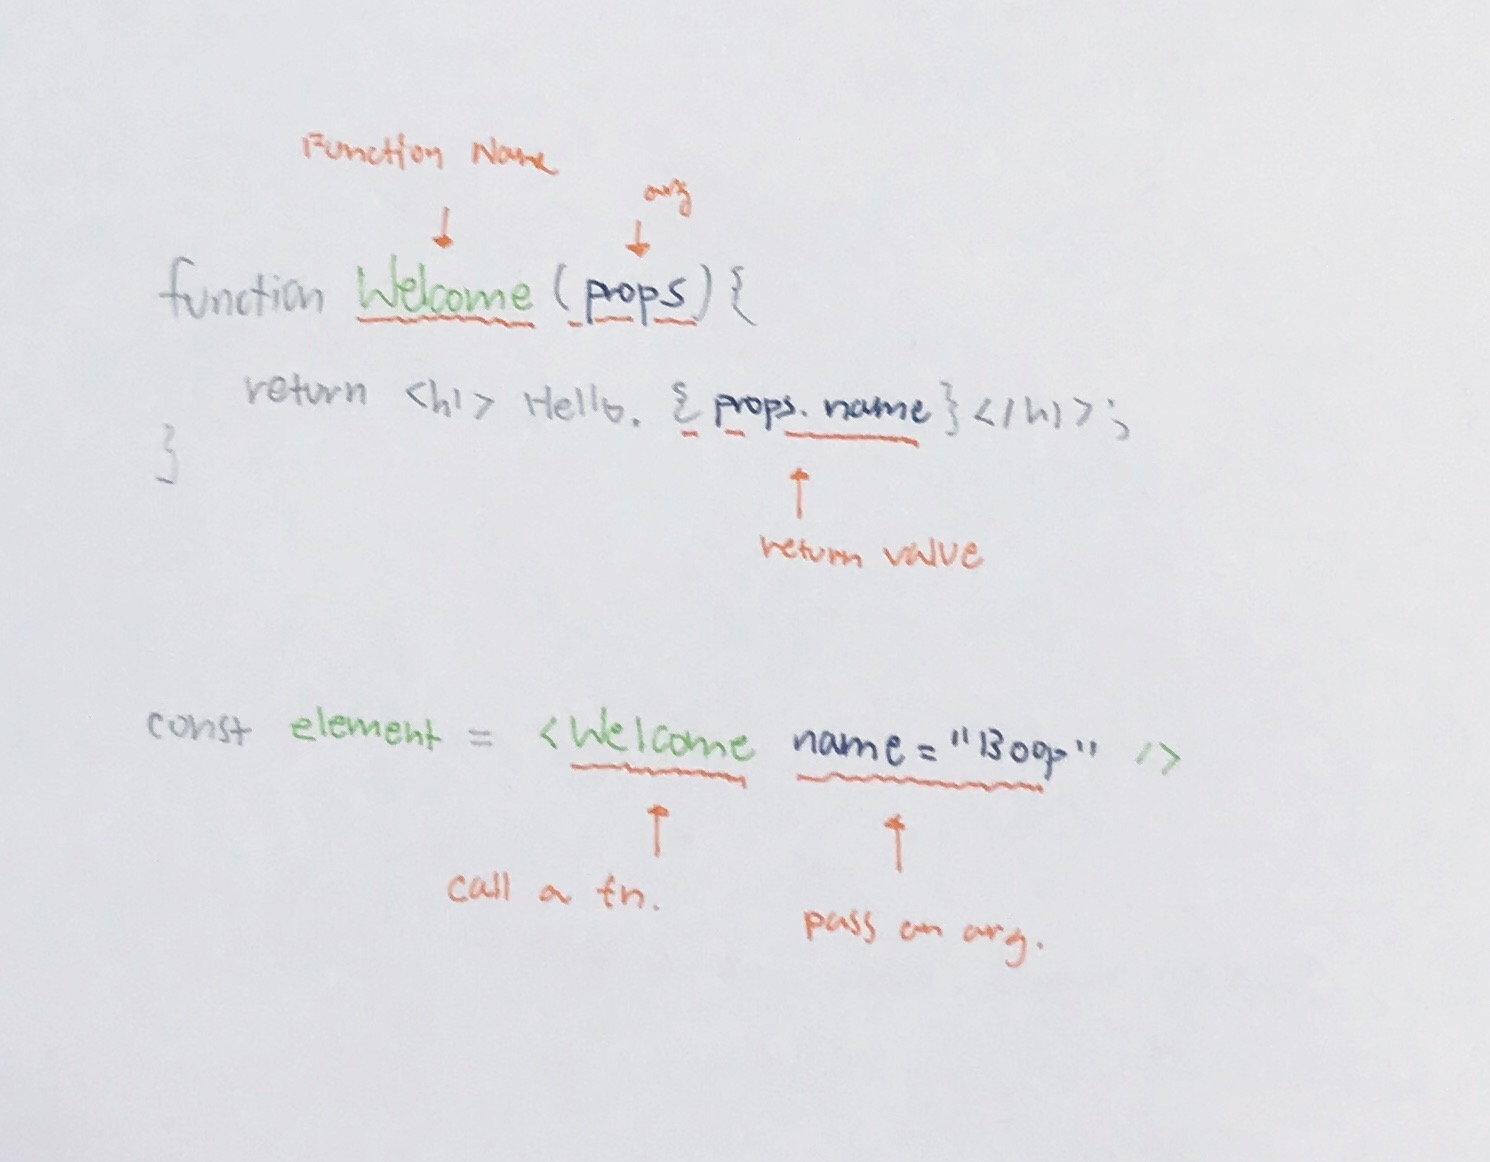 Function Name
arg
function Welcome (props) {
return <h1> Hello. {props. name}</h1>;
}
return value
const element = <Welcome name="Bog" />
call a fn.
pass an arg.